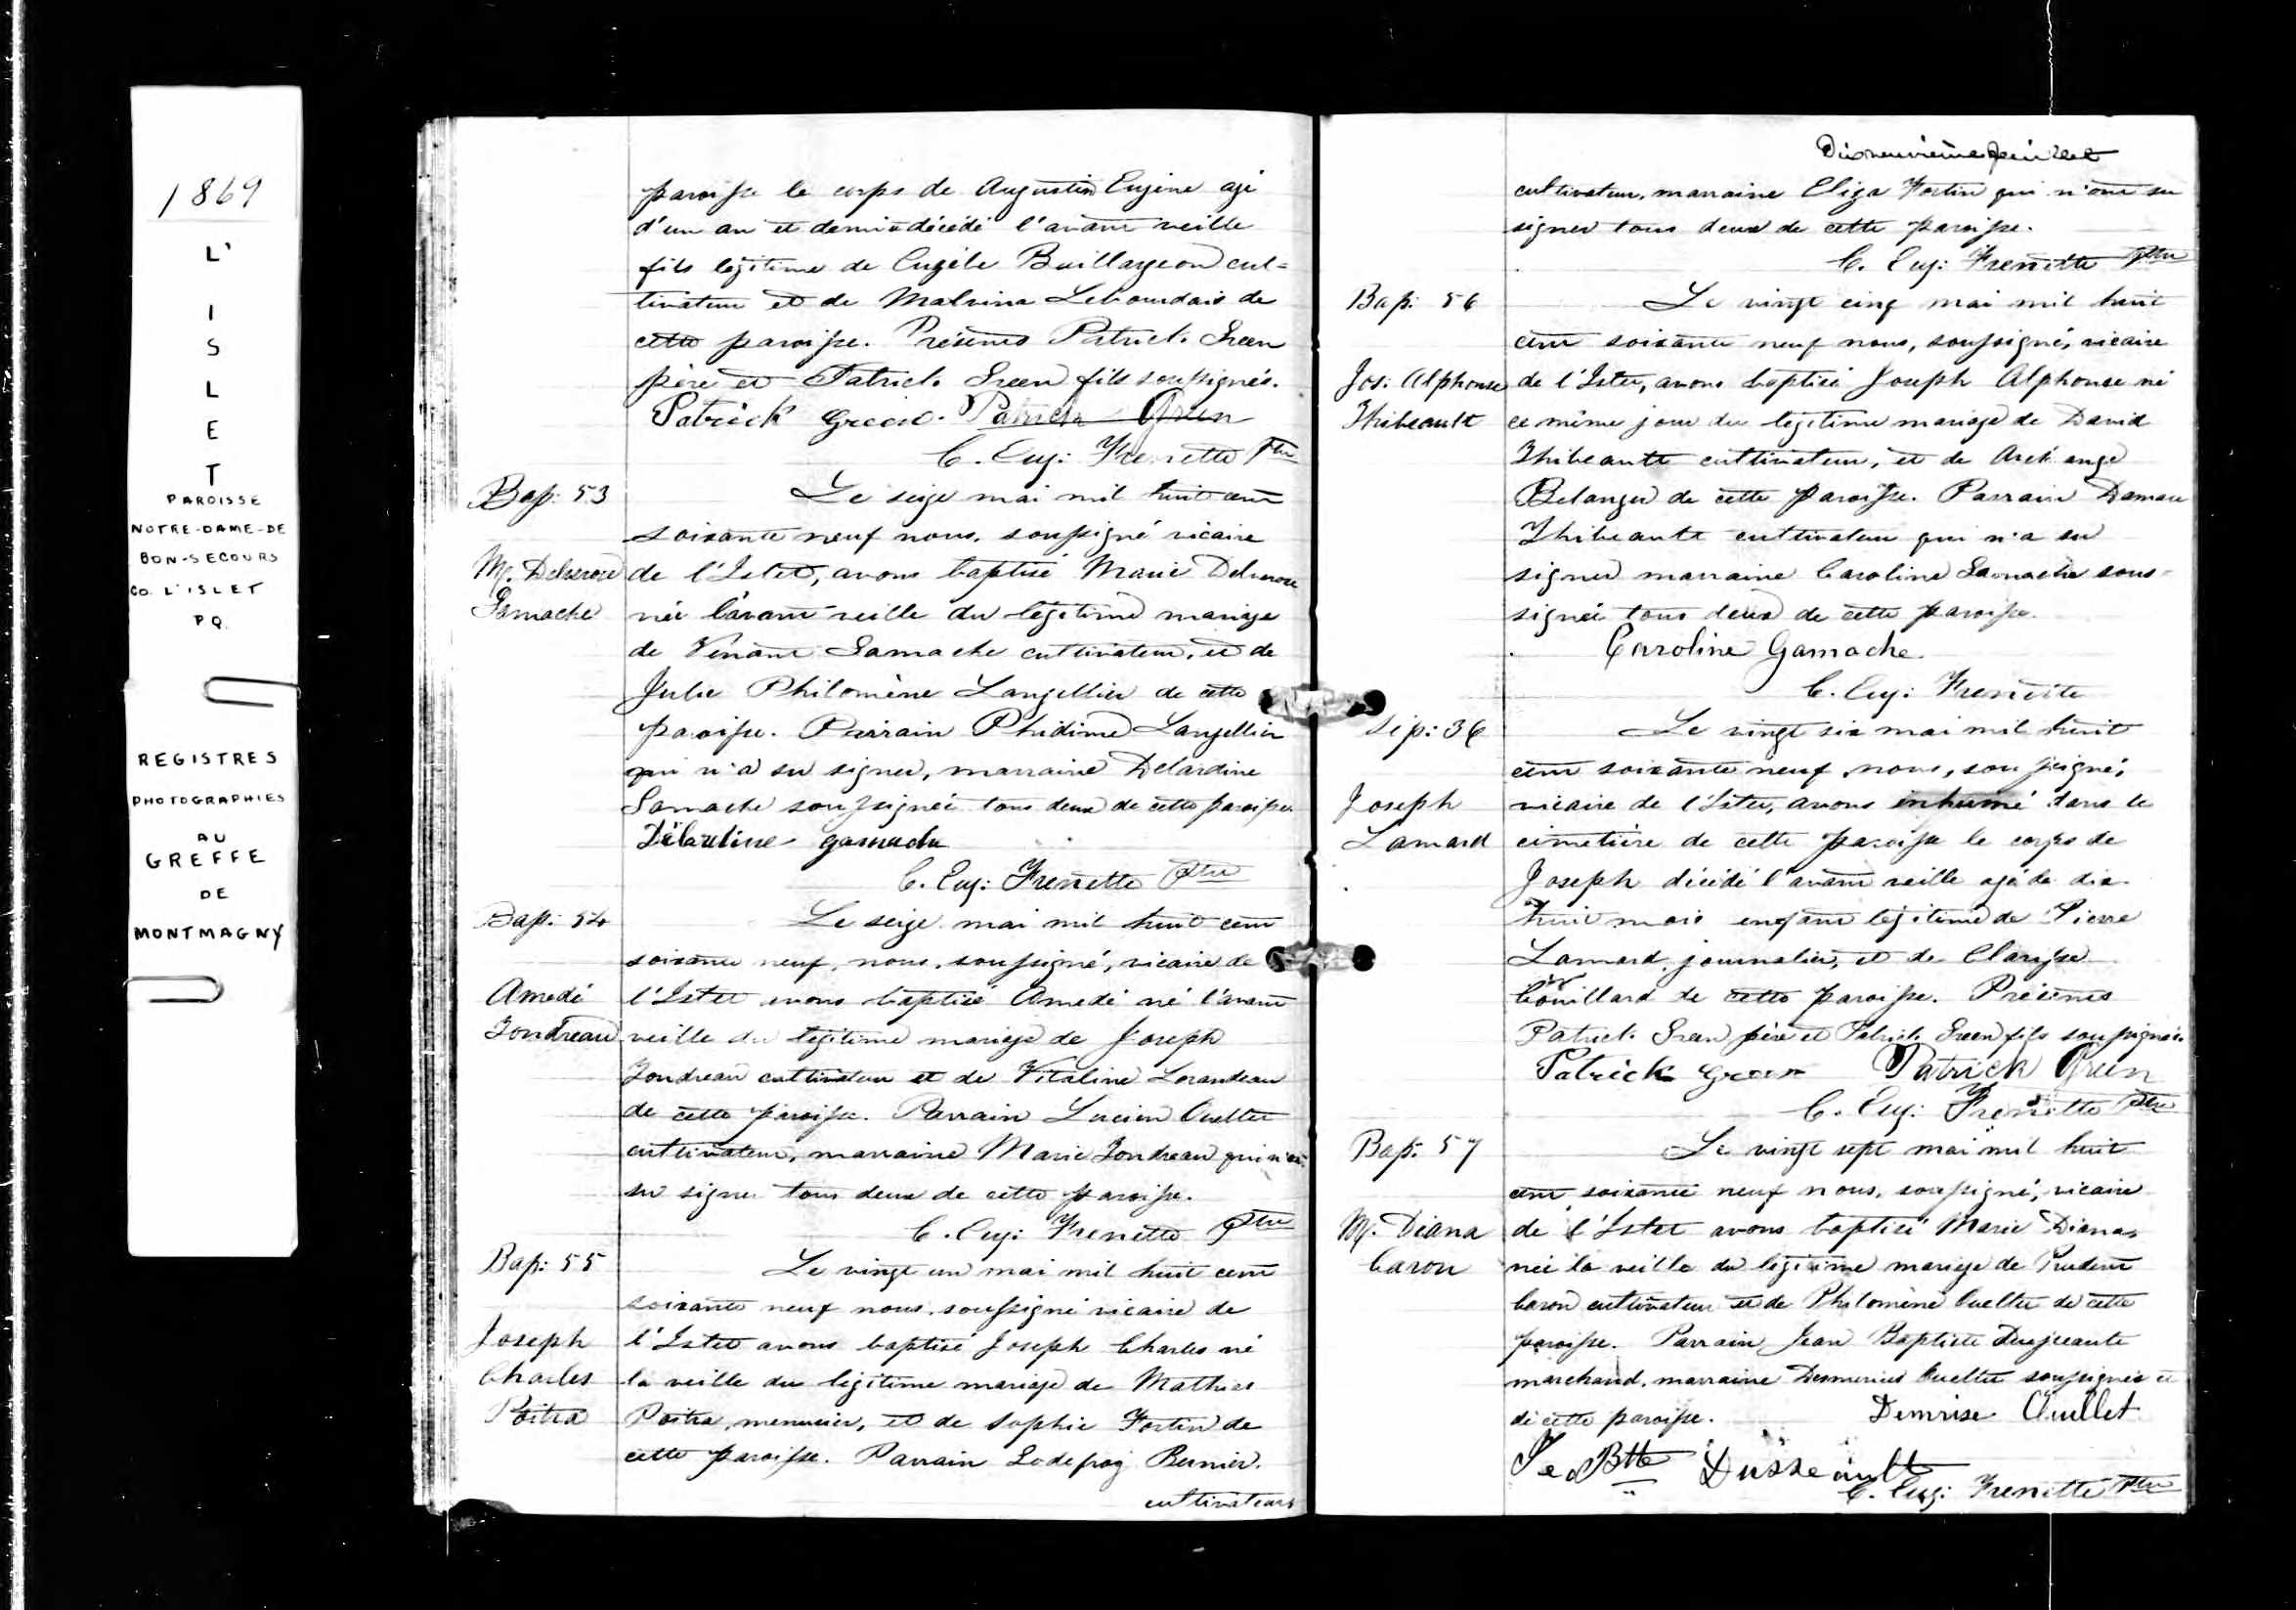 1869
L'
I
S
L
E
T
PAROISSE
NOTRE-DAME-DE
BON-SECOURS
CO. L'ISLET
P Q.
REGISTRES
PHOTOGRAPHIES
AU
GREFFE
DE
MONTMAGNY
paroisse le corps de Augustin Eugène agé
d'un an et demi décédé l'avant veille
fils légitime de Eugèle Baillargeon cul=
tivateur et de Malvina Lebourdais de
cette paroisse. Présents Patrick Green
père et Patrick Green fils soussignés.
Patrick Green. Patrick Green
C. Eug: Frenette Ptre
Bap: 53
Le seize mai mil huit cent
soixante neuf nous, soussigné vicaire
M. Delvina
Gamache
de l'Islet, avons baptisé Marie
née l'avant-veille du légitime mariage
de Vénant Gamache cultivateur, et de
Julie Philomène Langellier de cette
paroisse. Parrain Phidime Langellier
qui n'a su signer, marraine
Gamache soussignée tous deux de cette paroisse.
gamache
C. Eug: Frenette Ptre
Bap: 54
Le seize mai mil huit cent
soixante neuf, nous, soussigné, vicaire de
Amedé
Tondreau
l'Islet avons baptisé Amedé né l'avant
veille du légitime mariage de Joseph
Tondreau cultivateur et de Vitaline
de cette paroisse. Parrain Lucien Ouellet
cultivateur, marraine Marie Tondreau qui n'ont
su signer tous deux de cette paroisse.
C. Eug: Frenette Ptre
Bap: 55
Le vingt un mai mil huit cent
soixante neuf nous, soussigné vicaire de
Joseph
Charles
Poitra
l'Islet avons baptisé Joseph Charles né
la veille du légitime mariage de Mathias
Poitra, menuisier, et de Sophie Fortin de
cette paroisse. Parrain Godefroy Bernier.
cultivateur
Dixneuvième feuillet
cultivateur, marraine Eliza Fortin qui n'ont su
signer tous deux de cette paroisse.
C. Eug: Frenette Ptre
Bap: 56
Le vingt cinq mai mil huit
cent soixante neuf nous, soussigné, vicaire
Jos: Alphonse
Thibeault
de l'Islet, avons baptisé Joseph Alphonse né
ce même jour du légitime mariage de David
Thibeault cultivateur, et de Archange
Belanger de cette paroisse. Parrain Damase
Thibeault cultivateur qui n'a su
signer marraine Caroline Gamache sous=
signée tous deux de cette paroisse.
Caroline Gamache
C. Eug: Frenette
Sép: 36
Le vingt six mai mil huit
cent soixante neuf, nous, soussigné,
Joseph
Lamard
vicaire de l'Islet, avons inhumé dans le
cimetière de cette paroisse le corps de
Joseph décédé l'avant veille agé de dix-
huit mois enfant légitime de Pierre
Lamard, journalier, et de Clarisse
Couillard de cette paroisse. Présents
Patrick Green père et Patrick Green fils soussignés.
Patrick Green Patrick Green
C. Eug: Frenette Ptre
Bap: 57
Le vingt sept mai mil huit
cent soixante neuf nous, soussigné, vicaire
M. Diana
Caron
de l'Islet avons baptisé Marie Diana
née la veille du légitime mariage de Prudent
Caron cultivateur et de Philomène Ouellet de cette
paroisse. Parrain Jean Baptiste Dusseault
marchand, marraine Ouellet soussignés et
de cette paroisse. Demrise Ouellet
Je Bte Dusseault
C. Eug: Frenette Ptre